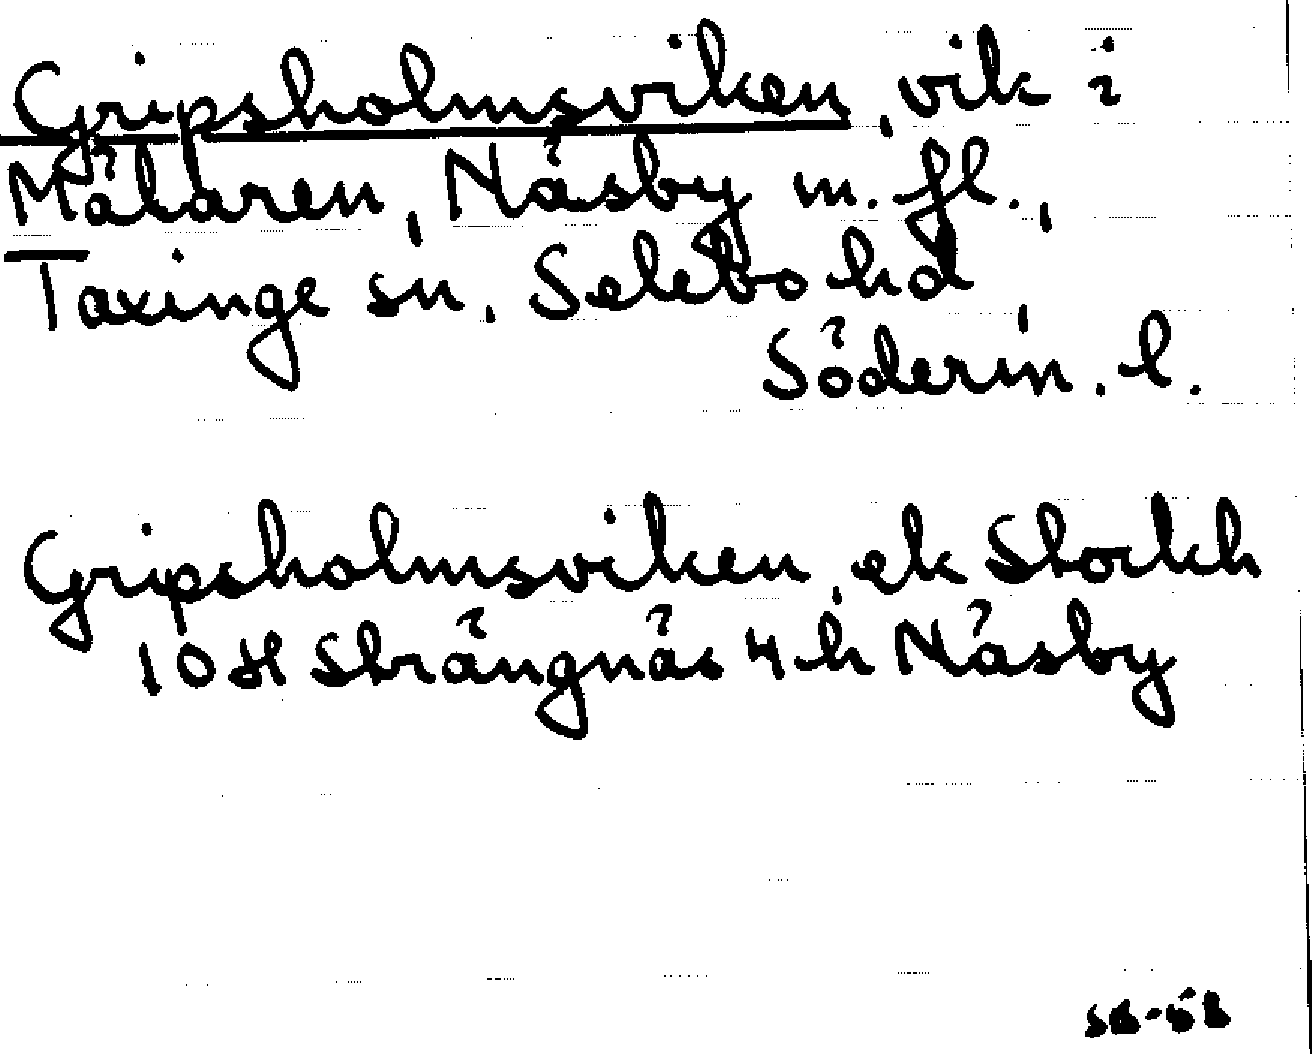 Gripsholmsviken, vik i
Mälaren, Näsby m. fl.,
Taxinge sn, Selebo hd,
Söderm. l.
Gripsholmsviken, ek Stockh
10 H Strängnäs 4 h Näsby